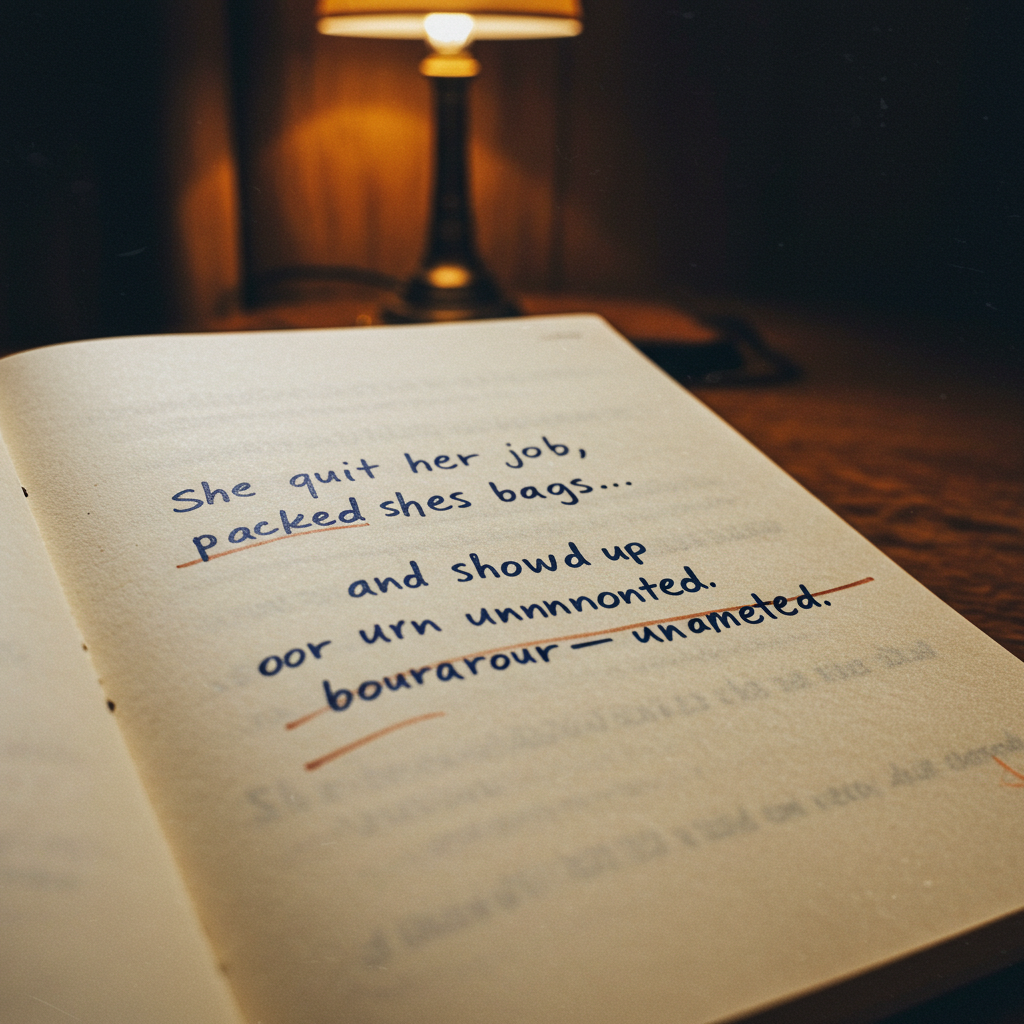 She quit her job,
packed shes bags...
and showd up
oor urn unnnnonted.
bourarour — unameted.